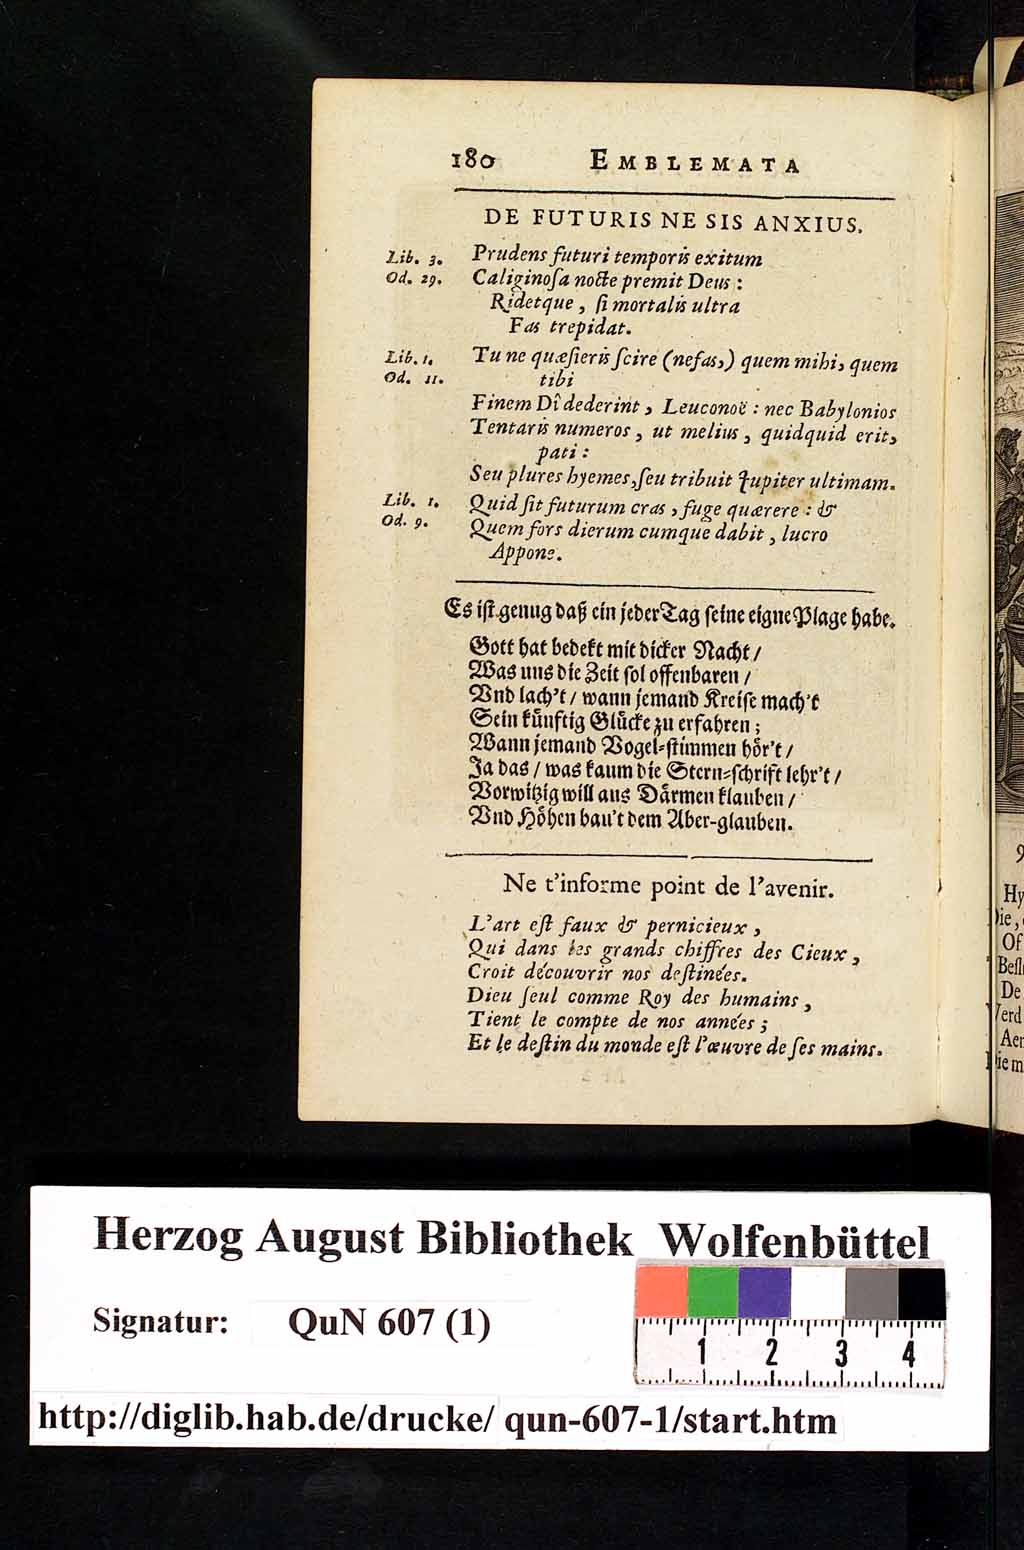 180 EMBLEMATA
DE FUTURIS NE SIS ANXIUS.
Lib. 3. Prudens futuri temporis exitum
Od. 29. Caliginoſa nocte premit Deus :
Ridetque , ſi mortalis ultra
Fas trepidat.
Lib. 1. Tu ne quæſieris ſcire (nefas,) quem mihi, quem
Od. 11. tibi
Finem Dî dederint , Leuconoë : nec Babylonios
Tentaris numeros , ut melius , quidquid erit,
pati :
Seu plures hyemes, ſeu tribuit Jupiter ultimam.
Lib. 1. Quid ſit futurum cras , fuge quærere : &
Od. 9. Quem fors dierum cumque dabit , lucro
Appone.
Es iſt genug daß ein jeder Tag ſeine eigne Plage habe.
Gott hat bedekt mit dicker Nacht /
Was uns die Zeit ſol offenbaren /
Vnd lach't / wann jemand Kreiſe mach't
Sein künftig Glücke zu erfahren ;
Wann jemand Vogel-ſtimmen hör't /
Ja das / was kaum die Stern-ſchrift lehr't /
Vorwitzig will aus Därmen klauben /
Vnd Höhen bau't dem Aber-glauben.
Ne t'informe point de l'avenir.
L'art eſt faux & pernicieux ,
Qui dans les grands chiffres des Cieux ,
Croit découvrir nos deſtinées.
Dieu ſeul comme Roy des humains ,
Tient le compte de nos années ;
Et le deſtin du monde eſt l'œuvre de ſes mains.
Hy
Of
De
Verd
Aer
Herzog August Bibliothek Wolfenbüttel
Signatur: QuN 607 (1)
1 2 3 4
http://diglib.hab.de/drucke/ qun-607-1/start.htm